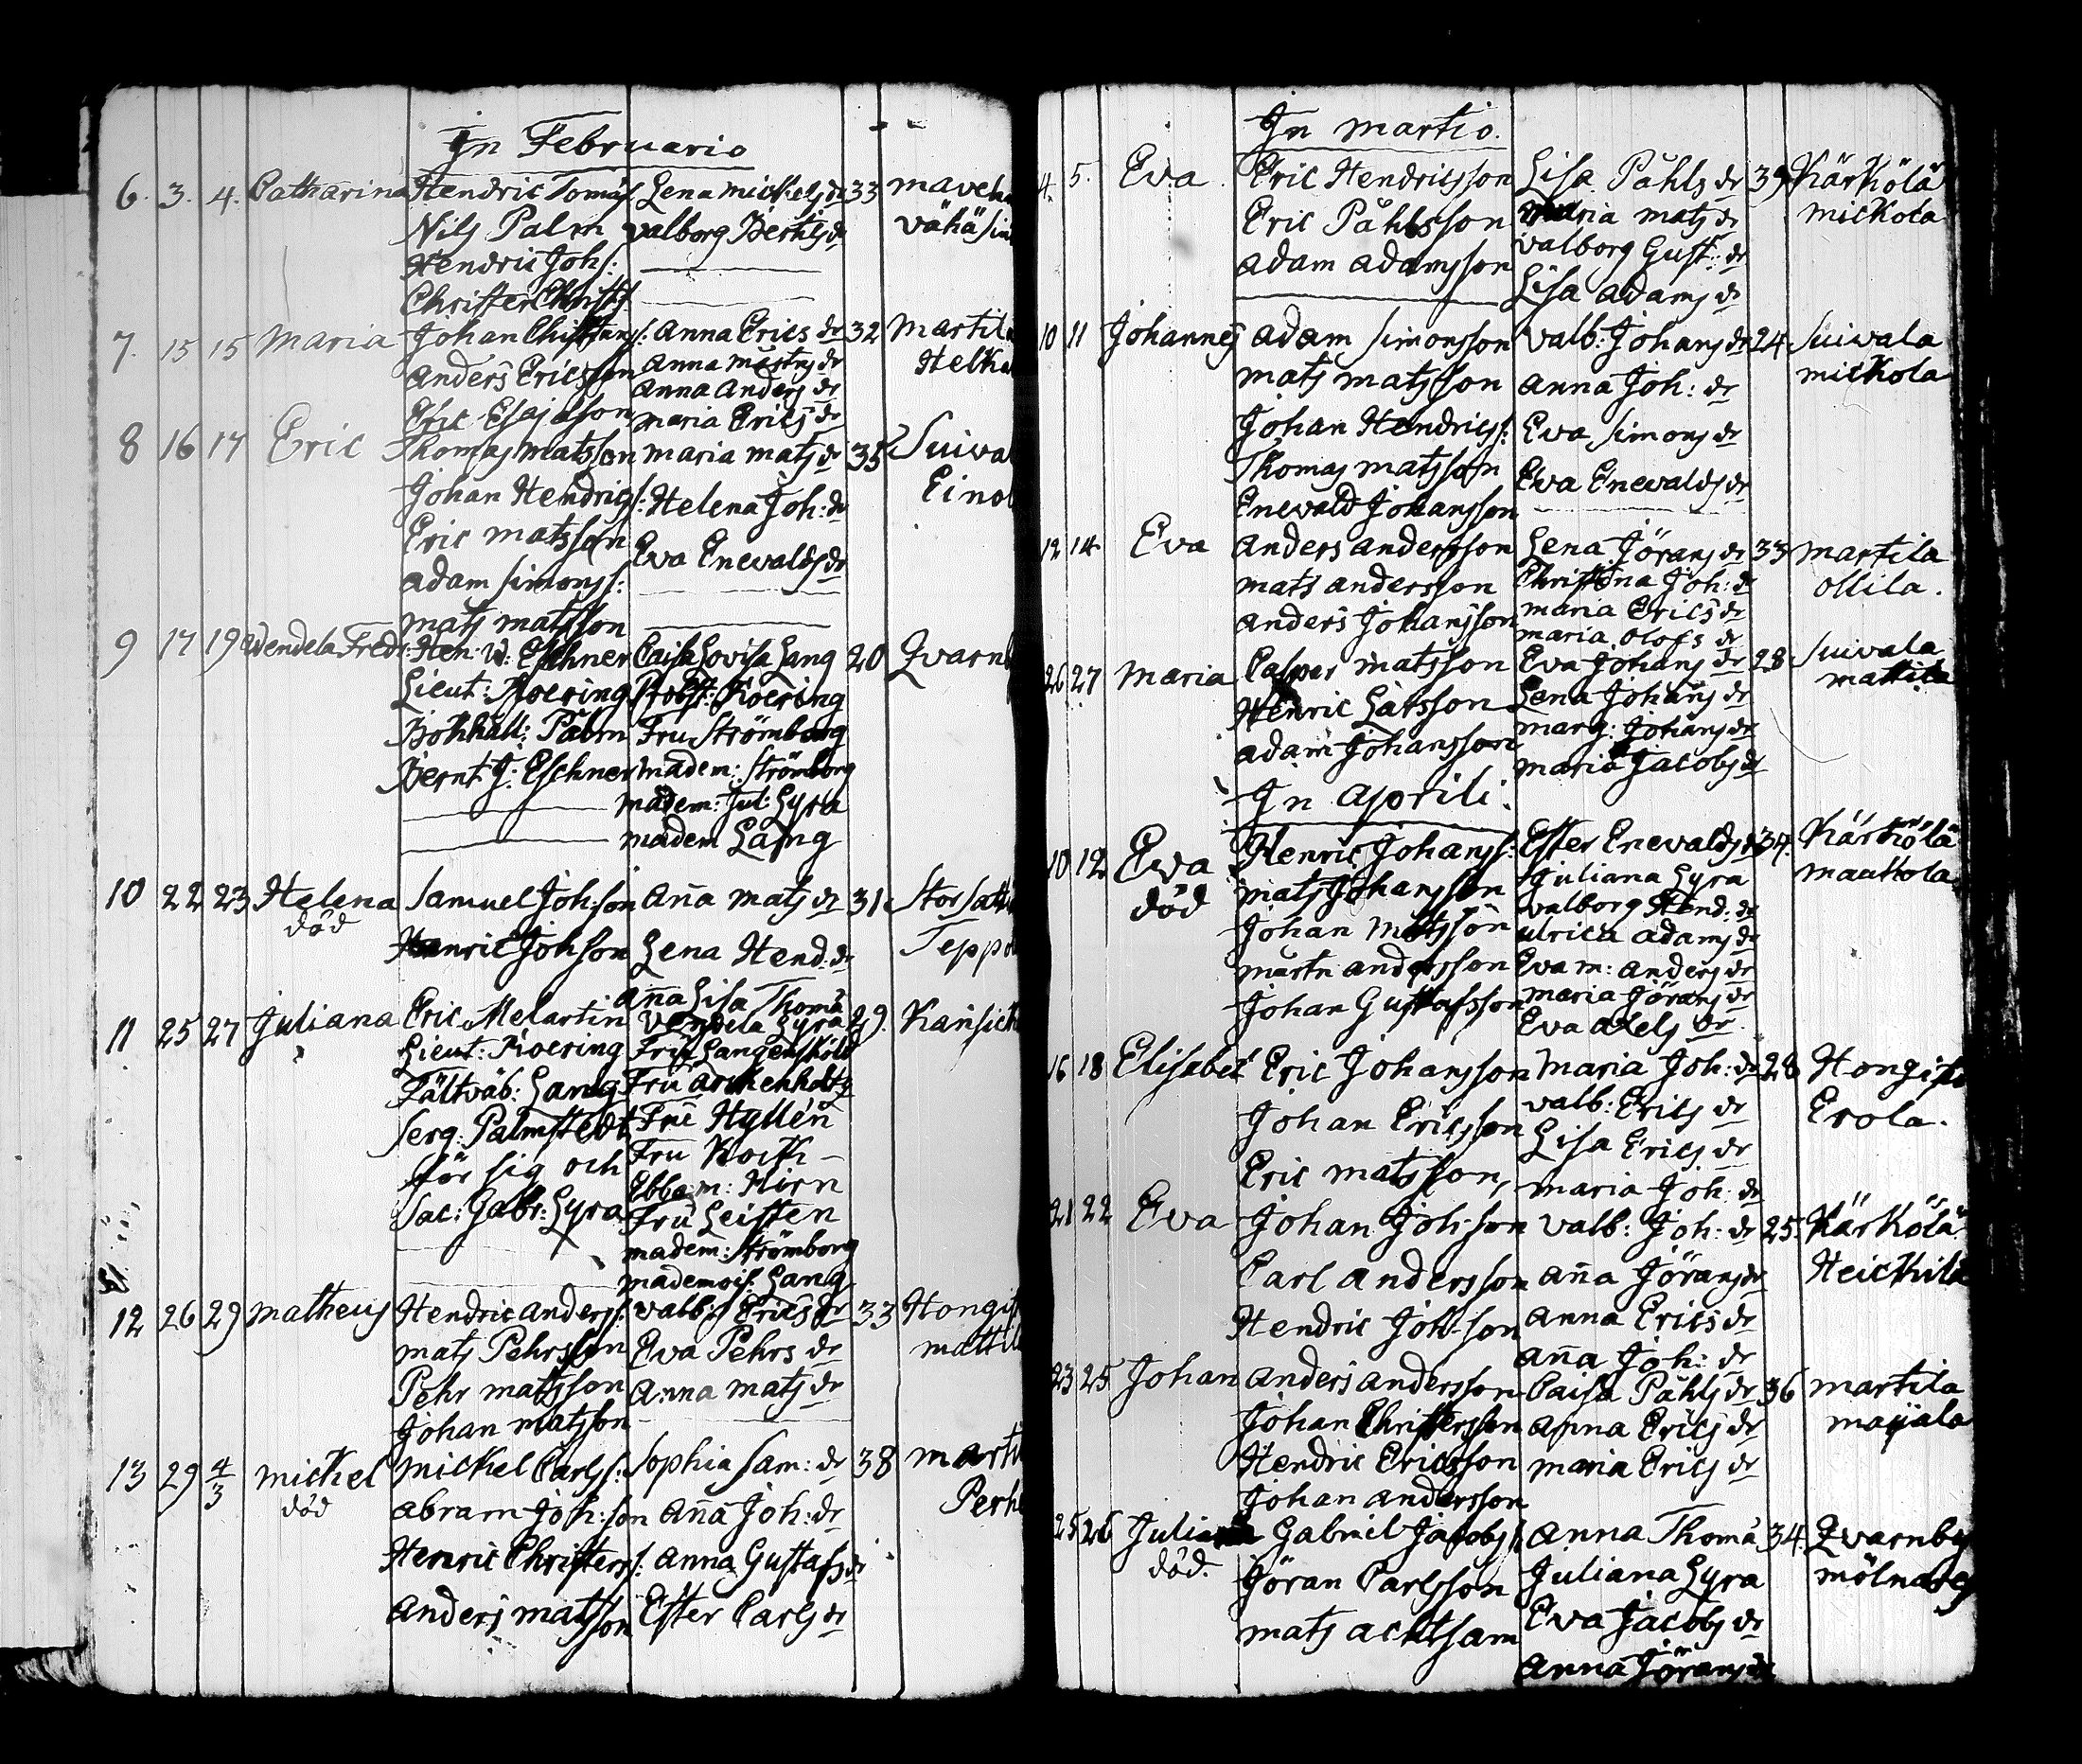 In Februario
6. 3. 4. Catharina Hendric Tomas Lena Mickels dr 33 Maveh
Nils Palm Valborg Bertils dr Vähäsim
Hendric Johs:
Christer Christs:
7. 15 15 Maria Johan Christians: Anna Erics dr 32 Martil
Anders Ericsson Anna Mårtns dr Helka
Anna Anders dr
Eric Esajasson Maria Erics dr
8 16 17 Eric Thomas Matsson Maria Mats dr 35 Suiwal
Johan Hendrics: Helena Joh: dr Einol
Eric Matsson Eva Enevalds dr
Adam Simons:
Mats Matsson
9 17 19 Wendela Fredr: Hen: W: Eschner Caisa Lovisa Lang 20 Qvarnb
Lieut: Roering Probst: Roering
Bokhåll: Palm Fru Strömborg
Bernt J: Eschner Madem: Strömborg
Madem: Jul: Lyra
Madem Lang
10 22 23 Helena Samuel Joh:son Aña Mats dr 31. Stor Satti
död
Henric Johson Lena Hend: dr Teppo
Aña Lisa Thomä
11 25 27 Juliana Eric Melartin Vendela Lyra 29. Kansick
Lieut: Roering Fru Langenskiöld
Fältväb: Lang Fru Arckenholtz
Serg: Palmstedt Fru Hyllén
för sig och Fru Kock
Ebba m: Hirn
Sac: Gabr: Lyra Fru Leisten
Madem: Strömborg
Mademois: Lang
12 26 29 Matheus Hendric Anders: Valb: Erics dr 33 Hongis
Mats Pehrsson Eva Pehrs dr Mattil
Pehr Matsson Anna Mats dr
Johan Matsson
13 29 4/3 Michel Mickel Carls: Sophia Sam: dr 38 Marti
död Abram Joh:son Aña Joh: dr Perh
Henric Christers: Anna Gustafs dr
Anders Matsson Ester Carls dr
In Martio.
4. 5. Eva Eric Hendricsson Lisa Påhls dr 39 Kärkölä
Eric Påhlsson Maria Mats dr Mickola
Valborg Gust: dr
Adam Adamsson Lisa Adams dr
10 11 Johannes Adam Simonsson Valb: Johans dr 24 Suivala
Mats Matsson Anna Joh: dr Mickola
Johan Hendrics: Eva Simons dr
Thomas Matsson Eva Enevalds dr
Enevald Johansson
12 14 Eva Anders Andersson Lena Jörans dr 33 Martila
Mats Andersson Christina Joh: dr Ollila.
Maria Erics dr
Anders Johansson Maria Olofs dr
26 27 Maria Casper Matsson Eva Johans dr 28 Suivala
Lena Johans dr Mattila
Henric Larsson Marg: Johans dr
Adam Johansson Maria Jacobs dr
In Aprili.
10 12 Eva Henric Johans: Ester Enevalds dr 34. Kärkölä
död Mats Johansson Juliana Lyra Mauttola
Valborg Hend: dr
Johan Matsson Ulrica Adams dr
Mårtn Andersson Eva M: Anders dr
Johan Gustafsson Maria Jörans dr
Eva Axels dr.
16 18 Elisabet Eric Johansson Maria Joh: dr 28 Hongisto
Johan Ericsson Valb: Erics dr Erola.
Lisa Erics dr
Eric Matsson, Maria Joh: dr
21 22 Eva Johan Joh:son Valb: Joh: dr 25. Kärkölä
Carl Andersson Aña Jörans dr Heickilä
Hendric Joh-son Anna Erics dr
Aña Joh: dr
23 25 Johan Anders Andersson Caisa Påhls dr 36 Martila
Johan Christersson Anna Erics dr Maijala
Hendric Ericsson Maria Erics dr
Johan Andersson
25 26 Juliana Gabriel Jacobs: Anna Thomä 34. Qvarnby
död. Jöran Carlsson Juliana Lyra Mölnare
Mats Achtsam Eva Jacobs dr
Anna Jörans dr